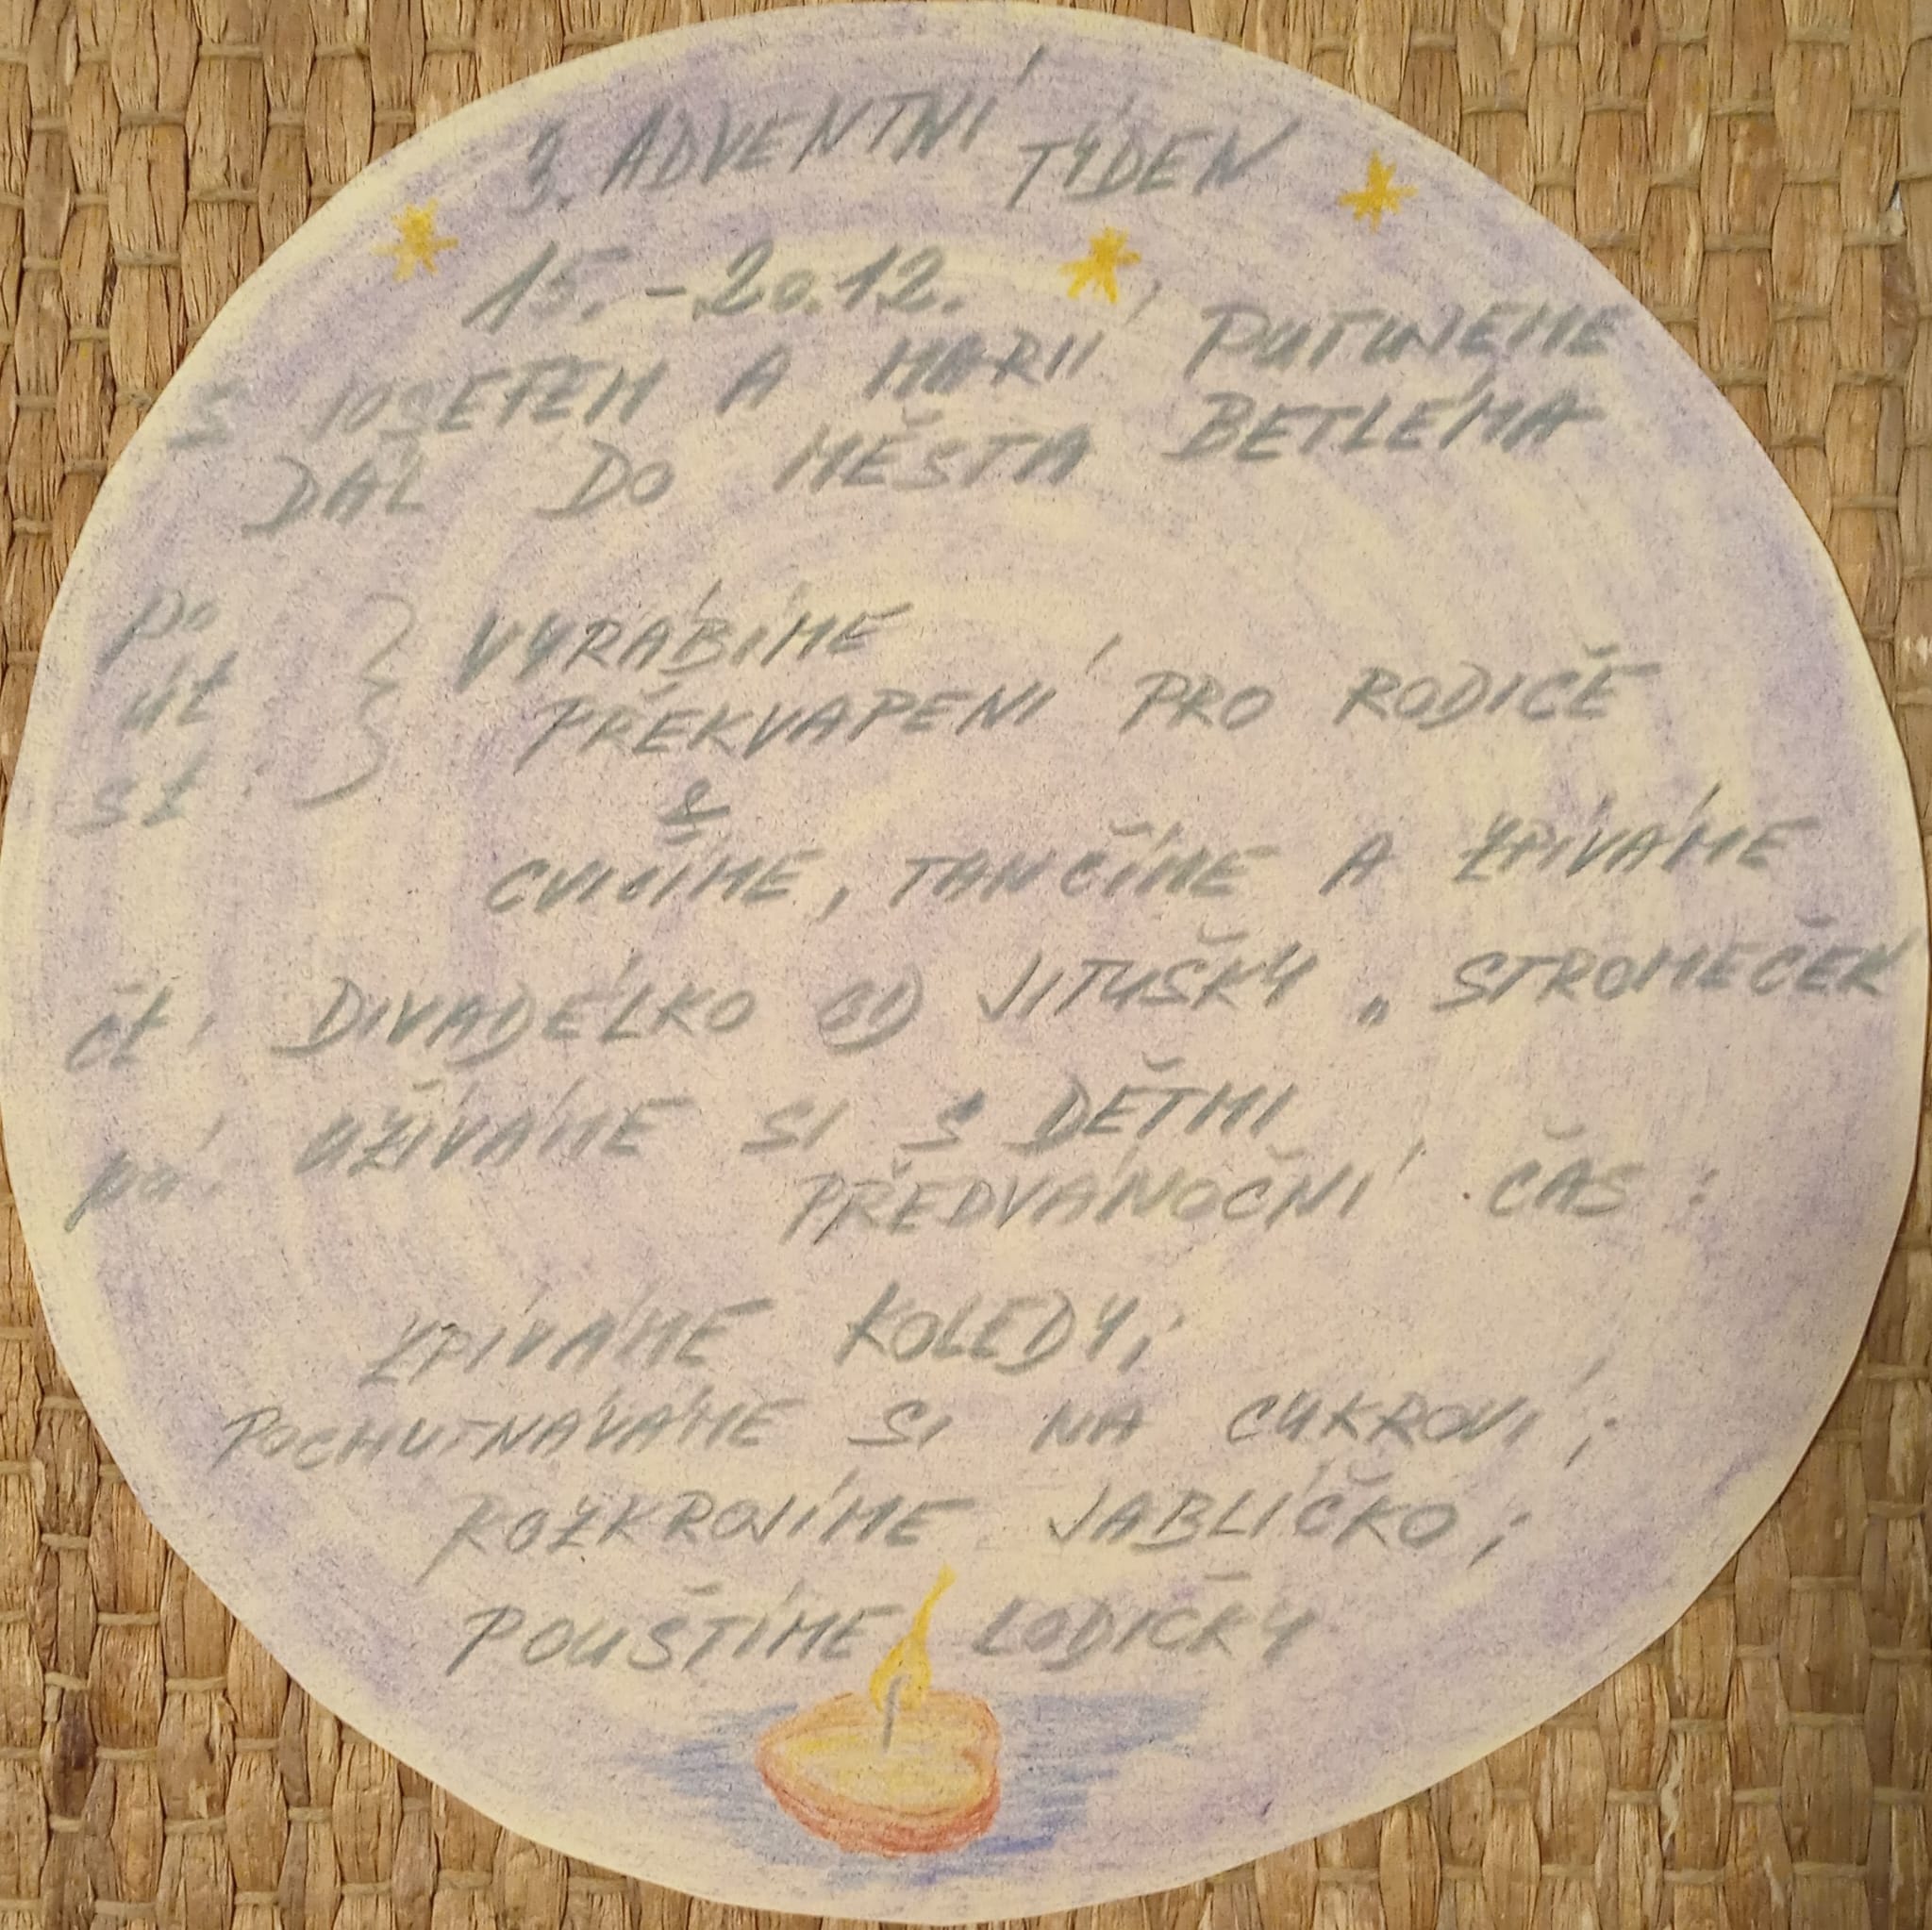 3. ADVENTNÍ TÝDEN
15.-20.12.
S JOSEFEM A MARIÍ PUTUJEME
DÁL DO MĚSTA BETLÉMA
po
út } VYRÁBÍME
PŘEKVAPENÍ PRO RODIČE
st.
&
CVIČÍME, TANČÍME A ZPÍVÁME
čt. DIVADÉLKO OD JITUŠKY „STROMEČEK
pá. UŽÍVÁME SI S DĚTMI
PŘEDVÁNOČNÍ ČAS:
ZPÍVÁME KOLEDY;
POCHUTNÁVÁME SI NA CUKROVÍ;
ROZKROJÍME JABLÍČKO;
POUŠTÍME LODIČKY